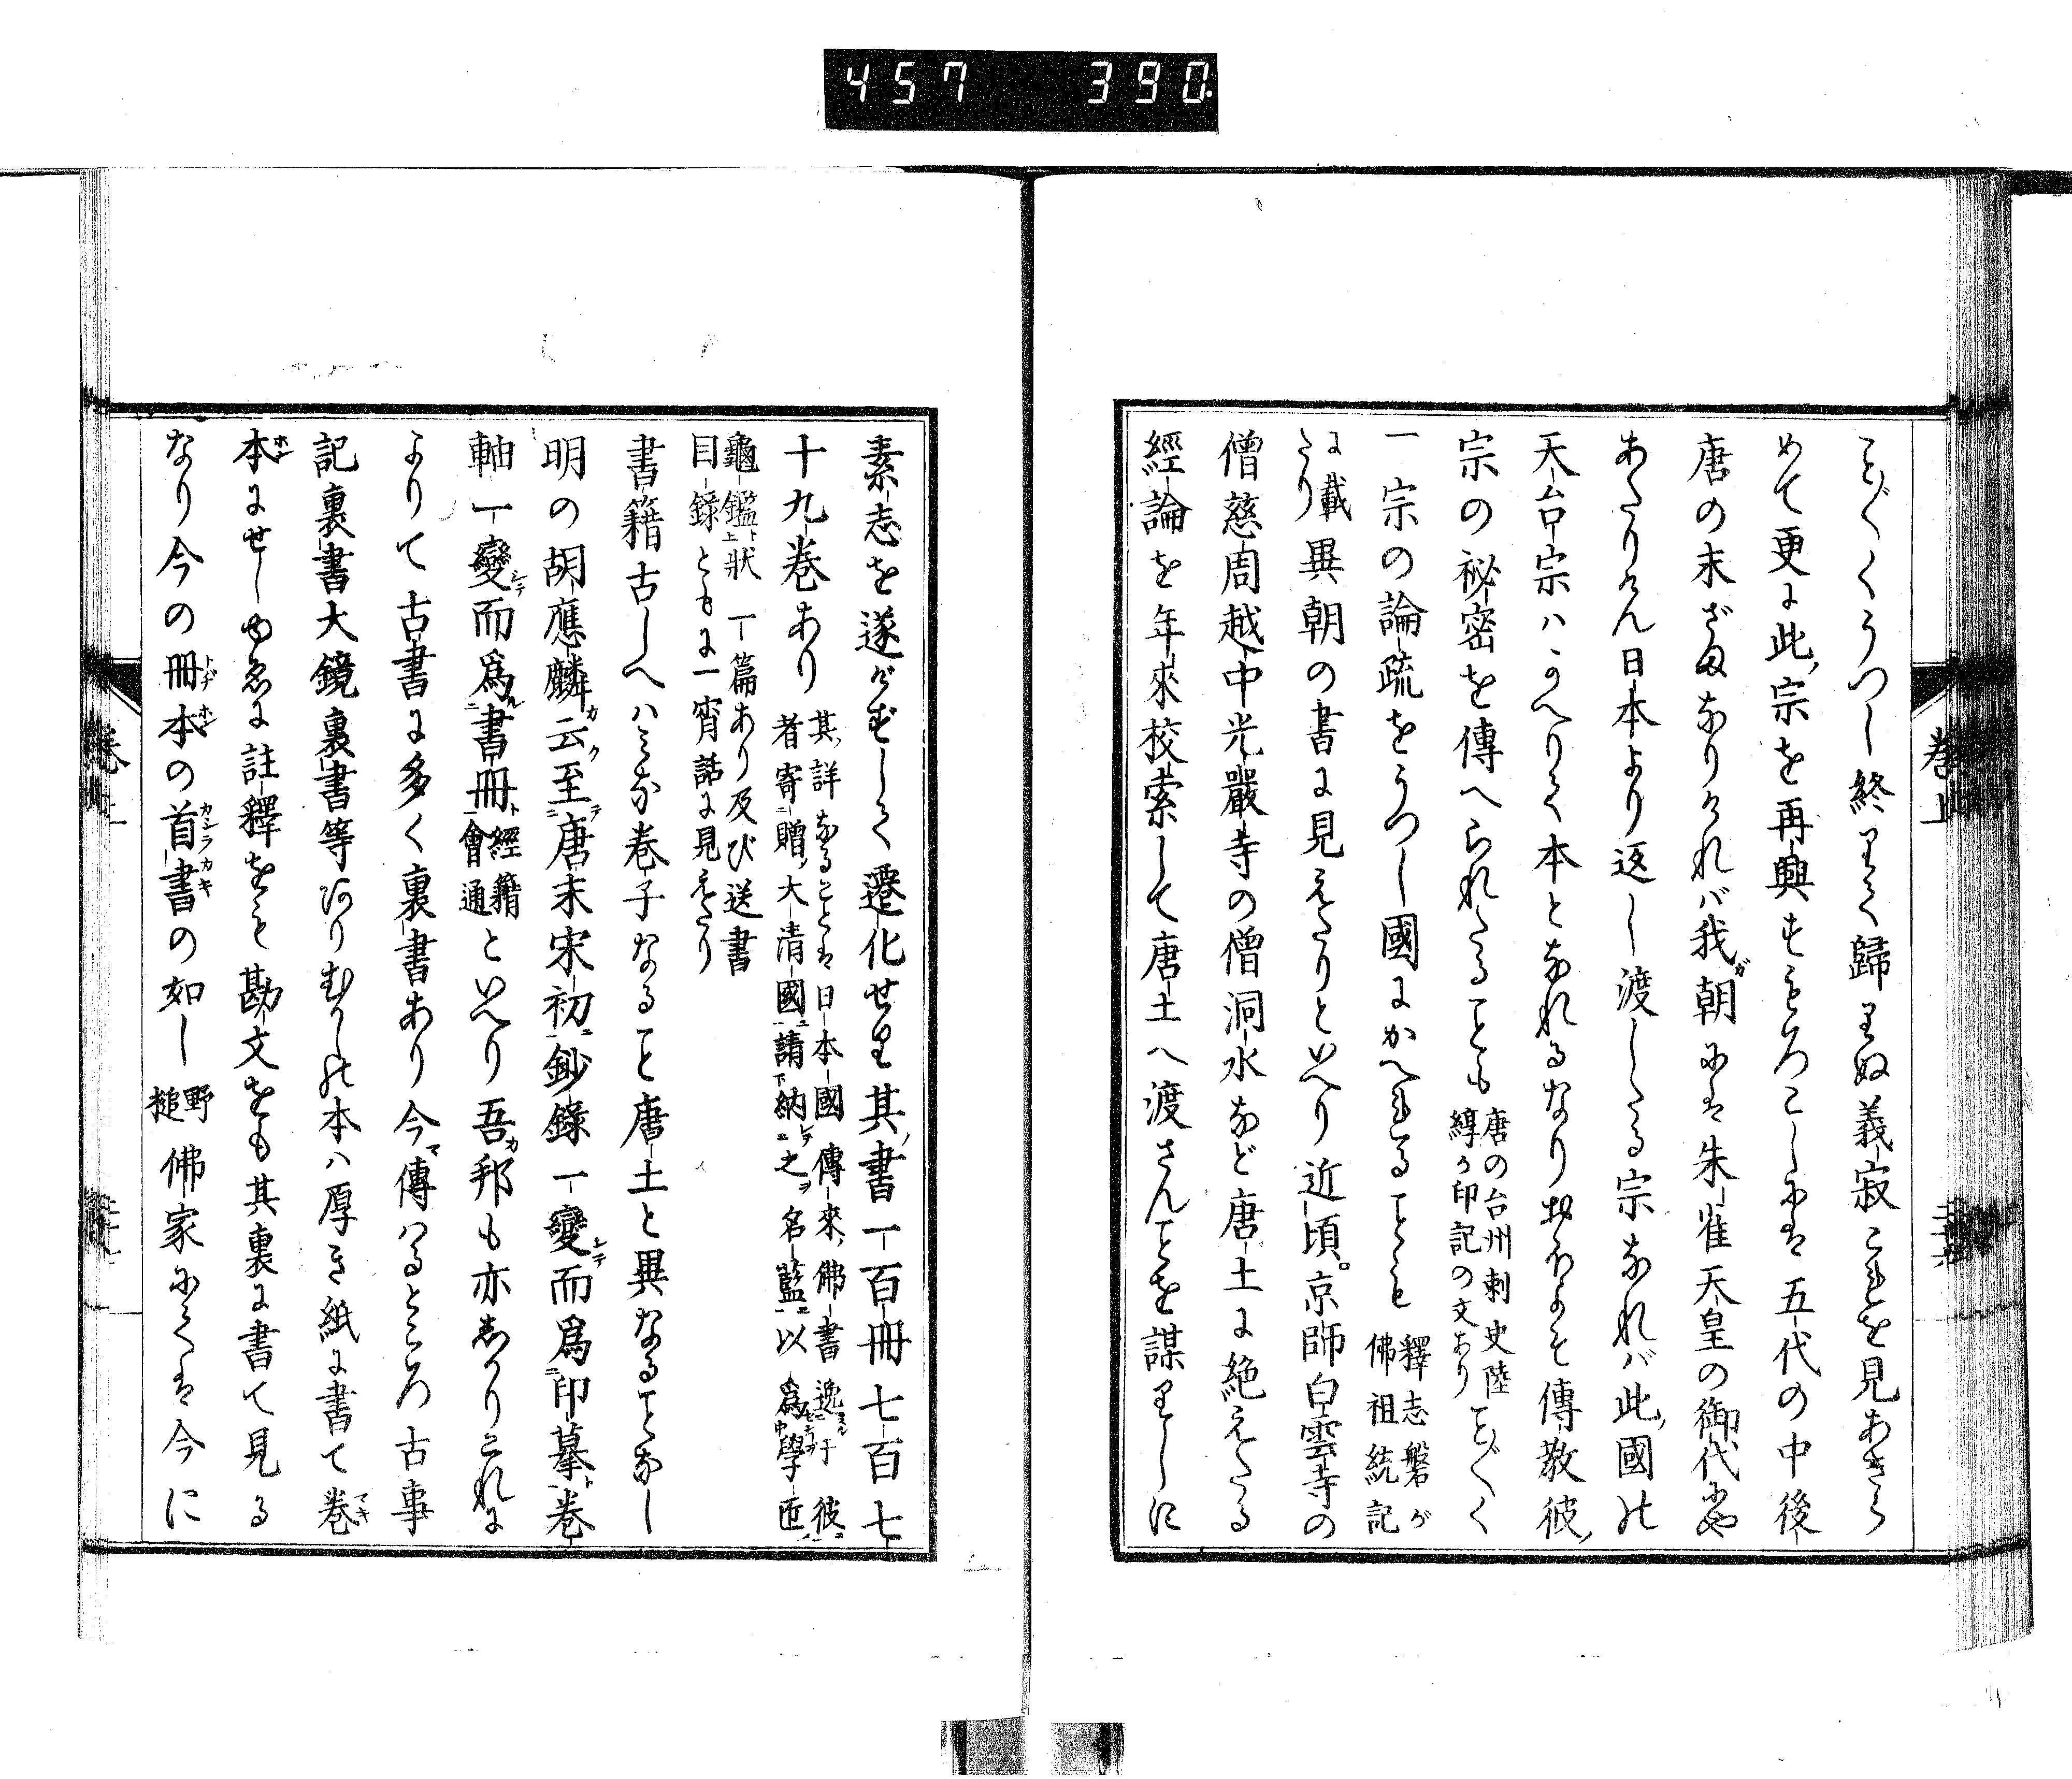 457 390
卷上
こと〴〵くうつし終りて歸りぬ義寂これを見あきら
めて更に此宗を再興すもろこしにては五代の中後
唐の末ざまなりければ我朝にては朱雀天皇の御代にや
あたりけん日本より返し渡したる宗なれば此國の
天台宗ハかへりて本となれるなりおほよそ傳教彼
宗の祕密を傳へられたることも
唐の台州刺史陸
淳が印記の文あり
こと〴〵く
一宗の論疏をうつし國にかへれることも
釋志磐が
佛祖統記
に載
たり
異朝の書に見えたりといへり近頃京師白雲寺の
僧慈周越中光嚴寺の僧洞水など唐土に絶えたる
經論を年來校索して唐土へ渡さんことを謀りしに
素志を遂げずして遷化せり其書一百冊七百七
十九卷あり
其詳なることは日本國傳來佛書逸于彼
者寄贈大清國請納之名藍以爲學匠
龜鑑狀一篇あり及び送書
目錄ともに一宵話に見えたり
書籍古しへハミな卷子なること唐土と異なることなし
明の胡應麟云至唐末宋初鈔錄一變而爲印摹卷
軸一變而爲書冊
經籍
會通
といへり吾邦も亦しかりこれに
よりて古書に多く裏書あり今傳ハるところ古事
記裏書大鏡裏書等ありむかしの本ハ厚き紙に書て卷
本にせしゆゑに註釋をも勘文をも其裏に書て見る
なり今の冊本の首書の如し
野
槌
佛家にては今に